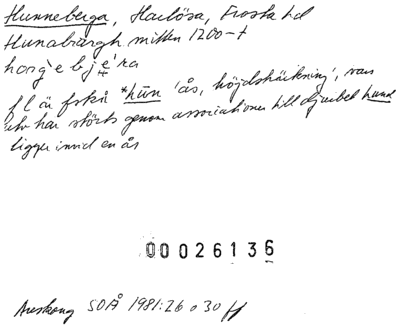 Hunneberga, Harlösa, Frosta hd
Hunabiærgh mitten 1200-t
f l är fskå *hūn 'ås, höjdsträckning', vars
ūtv har störts genom associationer till djurbet hund
ligger invid en ås
00026136
SOÅ 1981:26 o 30 ff